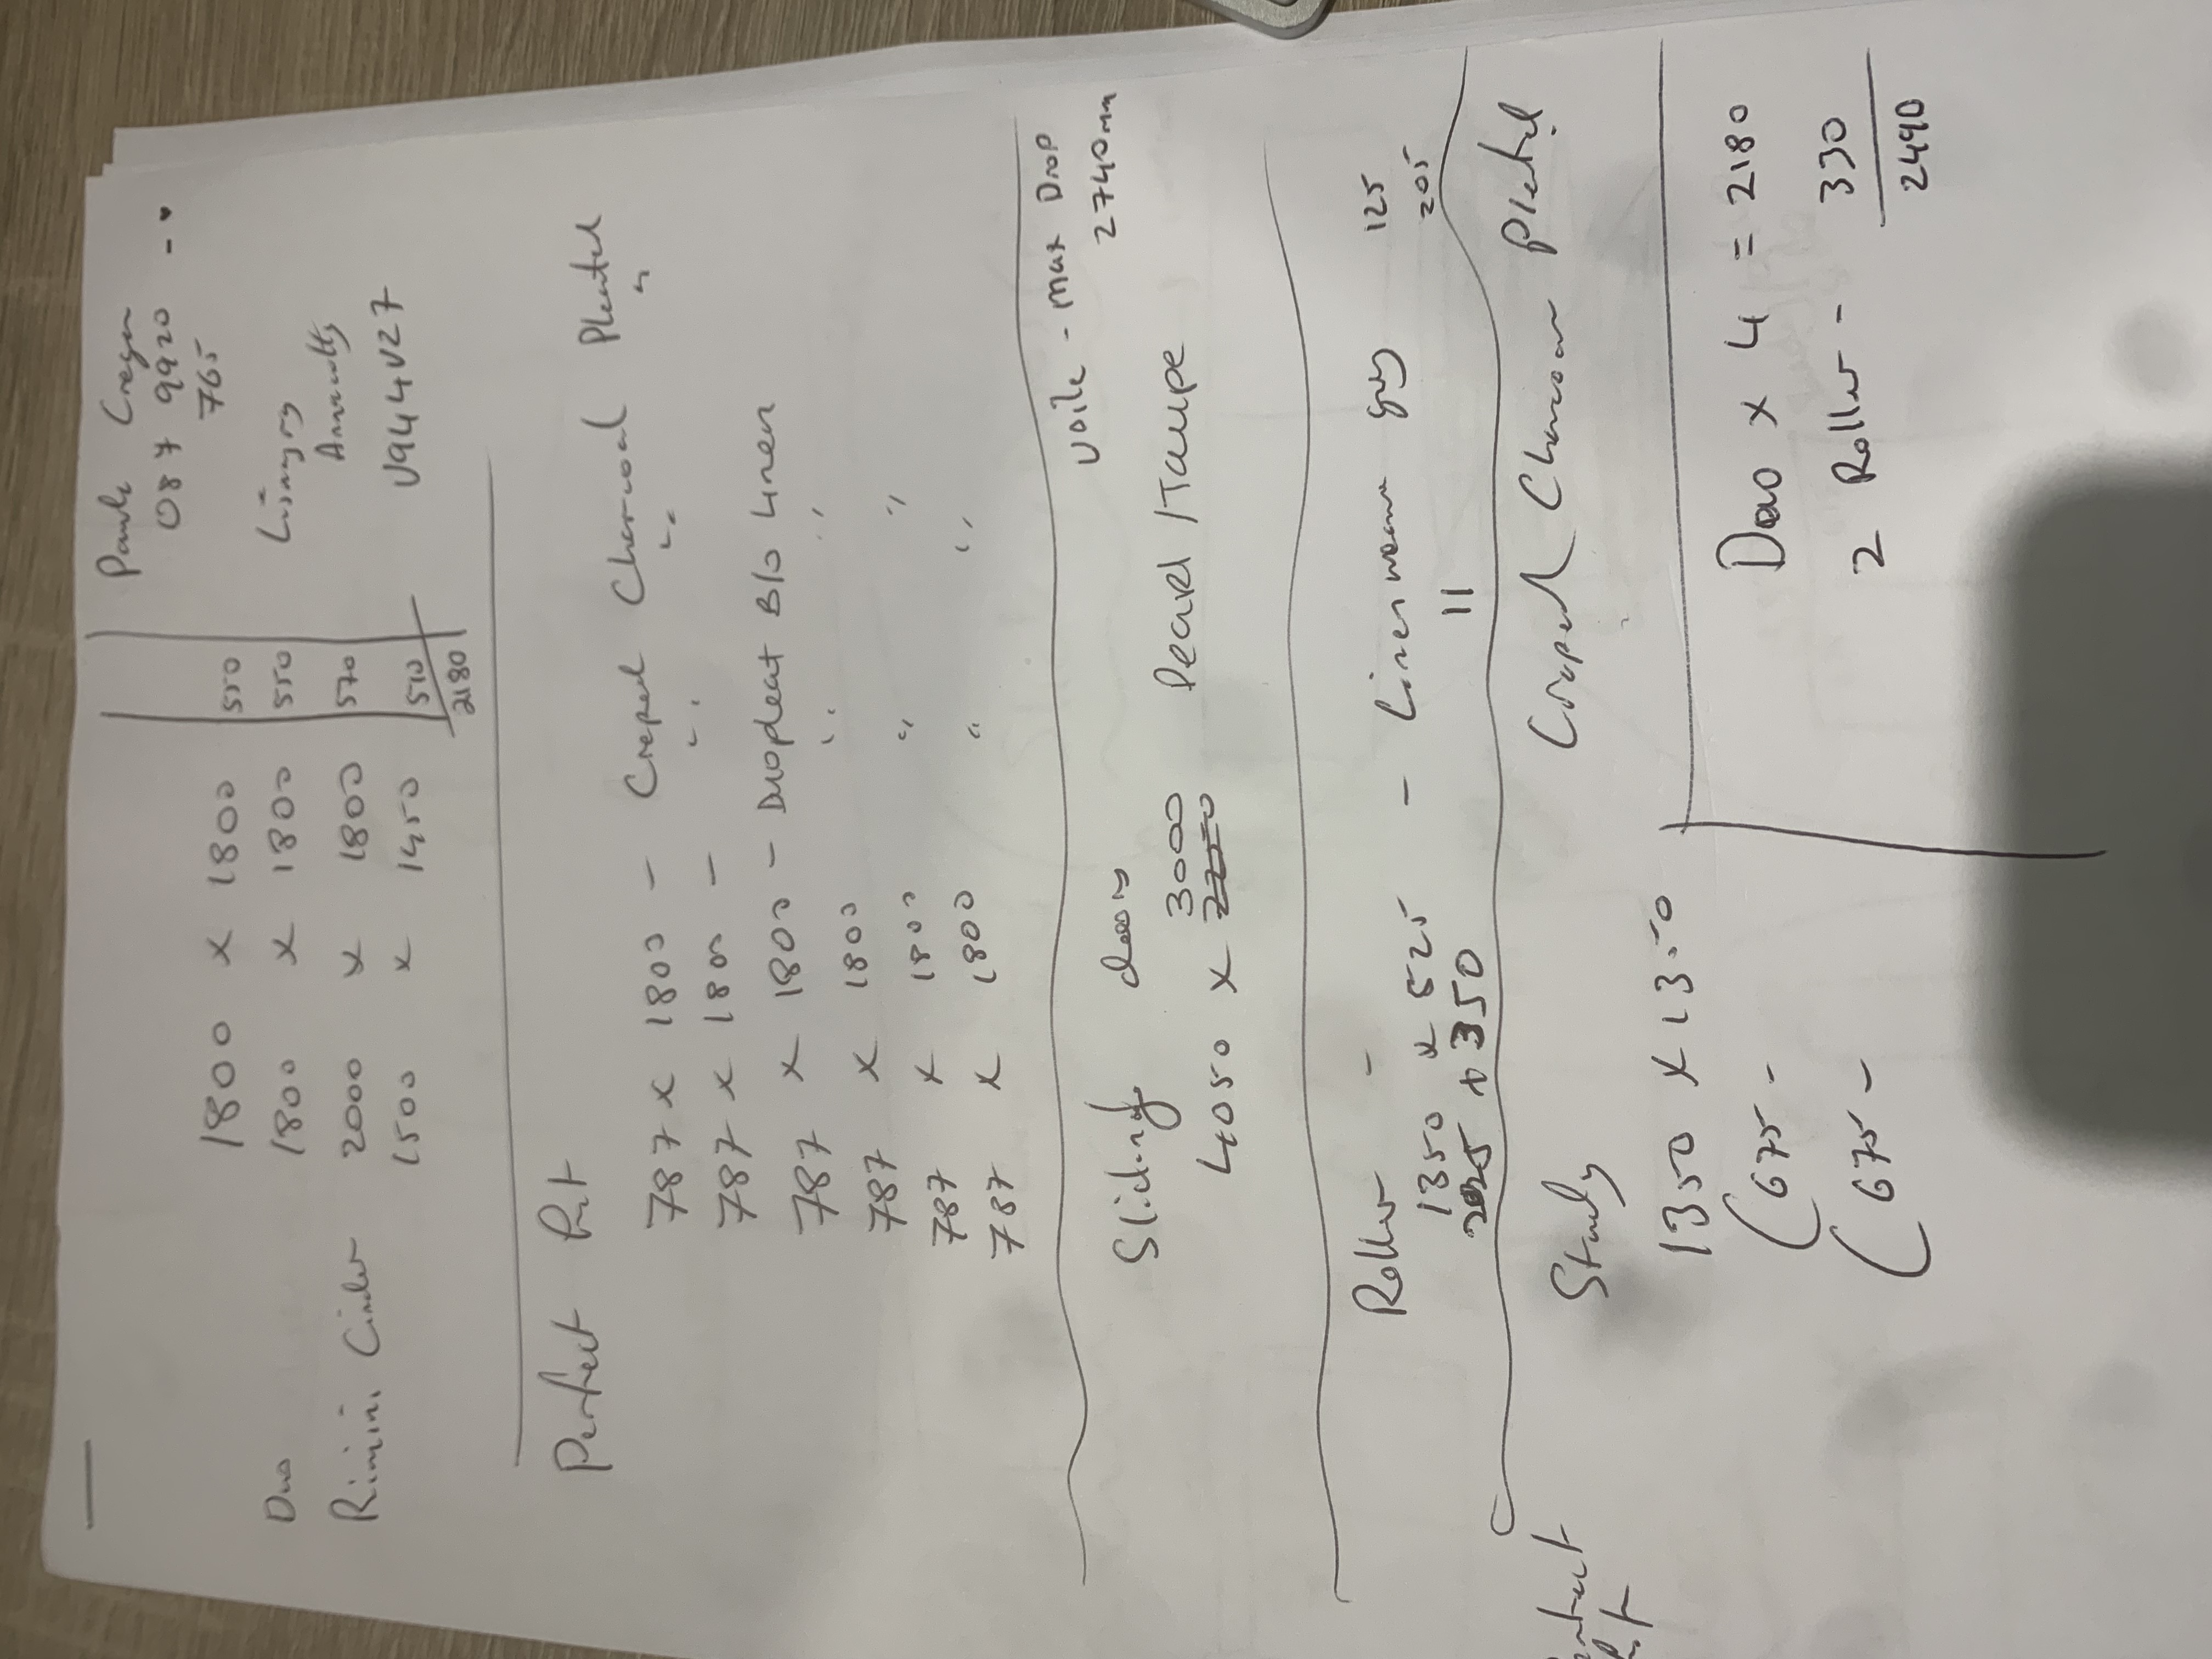 Creegan
087 9920
765
V94 4V27
1800 x 1800 550
Duo 1800 x 1800 550
Rimini Cinder 2000 x 1800 570
1500 x 1450 510
2180
Perfect Fit
787 x 1800 - Creped Charcoal Pleated
787 x 1800 - " " "
787 x 1800 - Duopleat B/o Linen
787 x 1800 " "
787 x 1800 " "
787 x 1800 " "
Voile - max Drop
2740mm
Sliding doors
3000
4050 x Pearl / Taupe
Roller -
1350 x 525 - Linen grey 125
x 1350 11 205
Study Creped Charcoal Pleated
Perfect
Fit
1350 x 1350
(675 -
(675 -
Duo x 4 = 2180
2 Roller - 330
2490